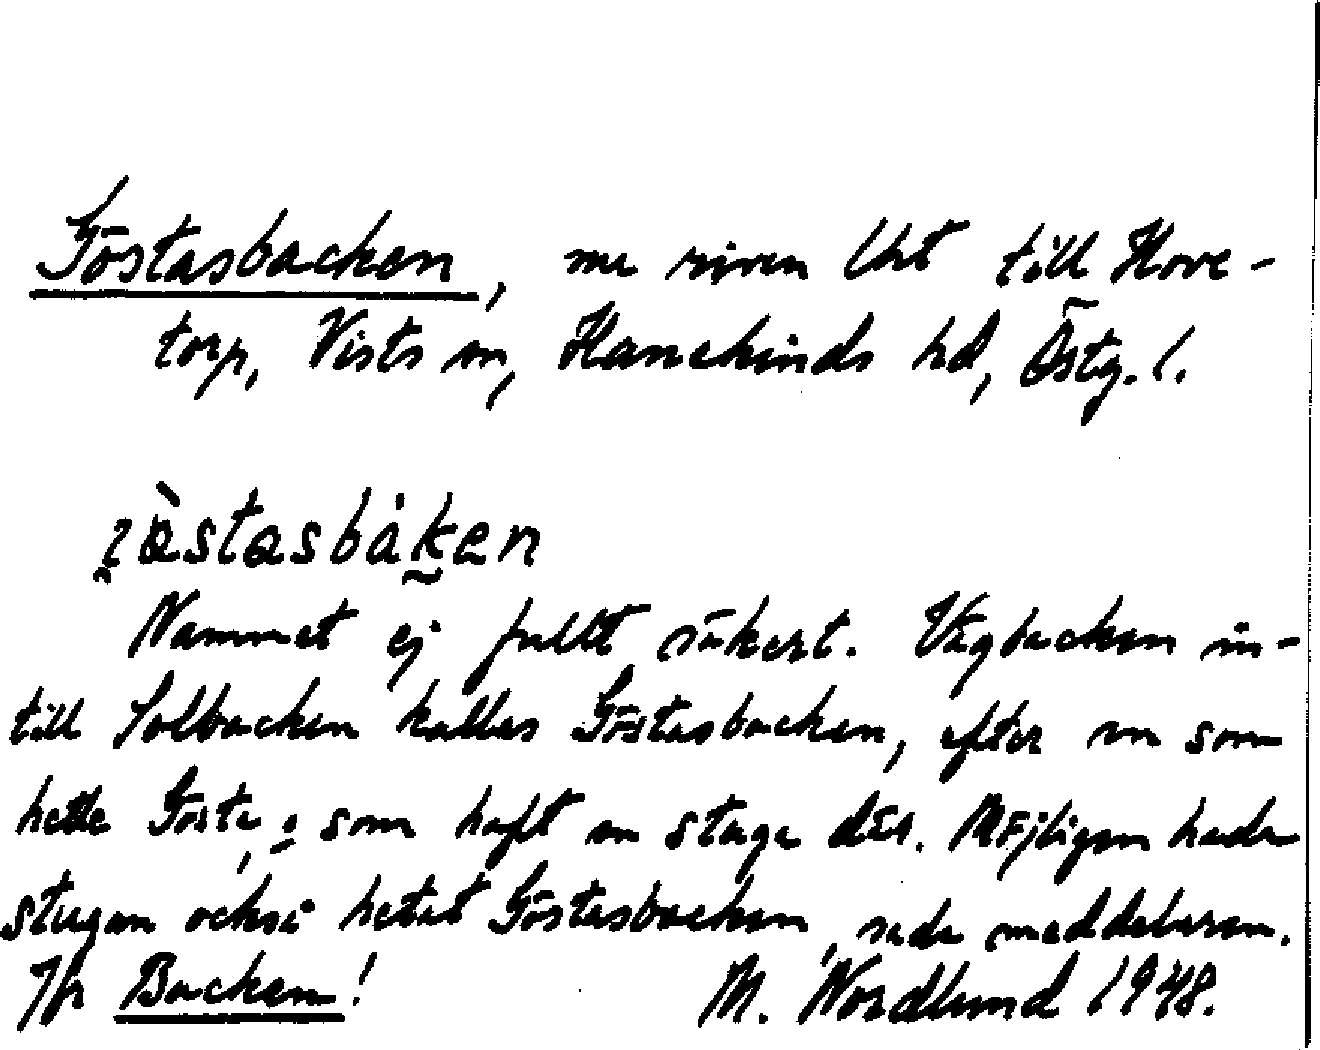 Göstasbacken, nu riven lht till Hove-
torp, Vists sn, Hanekinds hd, Östg. l.
Nammet ej fullt säkert. Vägbacken in-
till Solbacken kallas Göstasbacken, efter en som
hette Gösta, som haft en stuga där. Möjligen hade
stugan också hetat Göstasbacken, sade meddelaren.
Jfr Backen! M. Nordlund 1948.